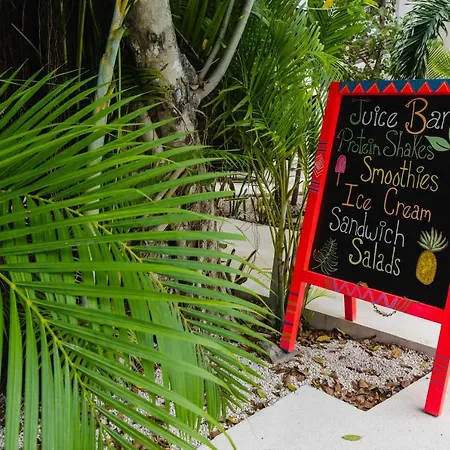 Juice Bar
Protein Shakes
Smoothies
Ice Cream
Sandwich
Salads